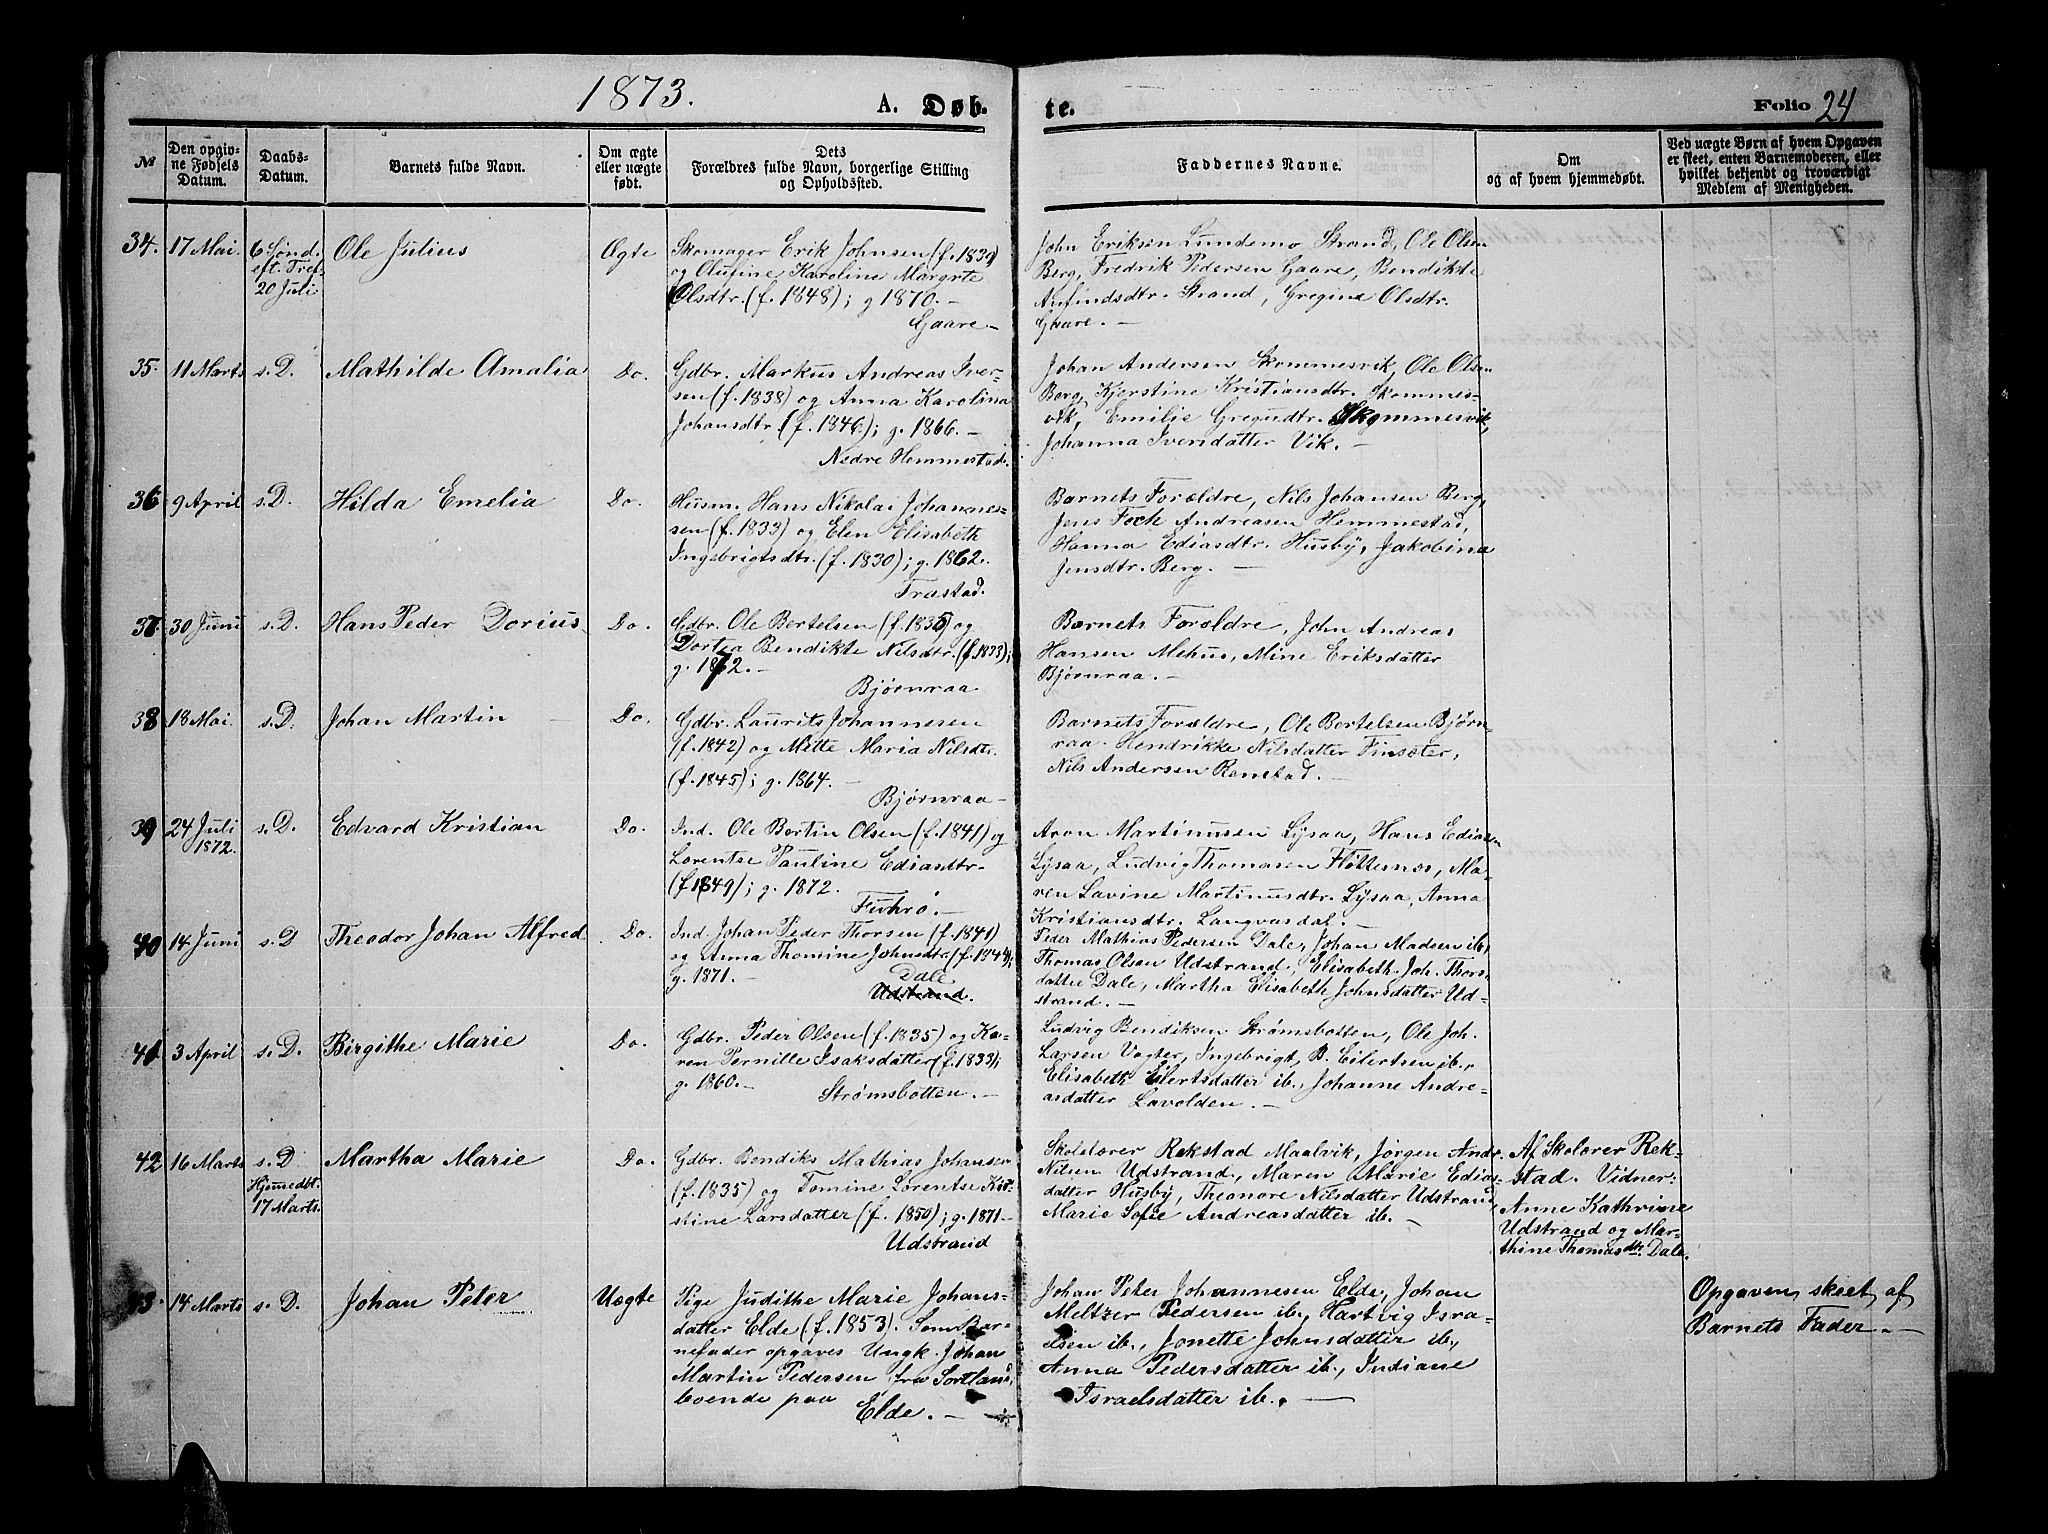 1873.
A. Døb-
te.
Folio 24
№
Den opgiv-
ne Fødsels
Datum.
Daabs-
Datum.
Barnets fulde Navn.
Om ægte
eller uægte
født.
Dets
Forældres fulde Navn, borgerlige Stilling
og Opholdssted.
Faddernes Navne.
Om
og af hvem hjemmedøbt.
Ved uægte Børn af hvem Opgaven
er skeet, enten Barnemoderen, eller
hvilket bekjendt og troværdigt
Medlem af Menigheden.
34.
17 Mai
6 Sønd.
eft. Tref.
20 Juli
Ole Julius
Ægte
Skomager Erik Johnsen (f. 1839)
og Olufine Karoline Margrte
Olsdtr. (f. 1848); g 1870. -
Gaare -
John Eriksen Lundemo Strand, Ole Olsen
Berg, Fredrik Pedersen Gaare, Bendikte
Anfindsdtr. Strand, Gregine Olsdtr.
Gaare. -
35.
11 Marts
s. D.
Mathilde Amalia
Do.
Gdbr. Markus Andreas Iver-
sen (f. 1838) og Anna Karolina
Johansdtr. (f. 1846); g. 1866. -
Nedre Hemmestad.
Johan Andersen Skommesvik, Ole Olsen
Berg, Kjerstine Kristiansdtr. Skommes-
vik, Emilie Gregudtr. Skommesvik,
Johanna Iversdatter Vik. -
36
9 April
s. D.
Hilda Emelia
Do.
Husm. Hans Nikolai Johannes-
sen (f. 1833) og Elen Elisabeth
Ingebrigtsdtr. (f. 1830); g. 1862.
Trastad.
Barnets Forældre, Nils Johansen Berg,
Jens Fock Andreasen Hemmestad,
Hanna Ediasdtr. Husby, Jakobina
Jensdtr. Berg. -
37.
30 Juni
s. D.
Hans Peder Dorius
Do.
Gdbr. Ole Bertelsen (f. 1835) og
Dortea Bendikte Nilsdtr. (f. 1833);
g. 1862. -
Bjørnraa
Barnets Forældre, John Andreas
Hansen Mehus, Mine Eriksdatter
Bjørnraa. -
38
18 Mai.
s. D.
Johan Martin
Do.
Gdbr. Laurits Johannesen
(f. 1842) og Mette Maria Nilsdtr.
(f. 1845); g. 1864. -
Bjørnraa -
Barnets Forældre, Ole Bertelsen Bjørn-
raa. Hendrikke Nilsdatter Finsæter,
Nils Andersen Renstad. -
39
24 Juli
1872.
s. D.
Edvard Kristian
Do.
Ind. Ole Bertin Olsen (f. 1841) og
Lorentse Pauline Ediasdtr.
(f. 1849); g. 1872.
Fuhrø. -
Aron Martinussen Lysaa, Hans Ediasen
Lysaa, Ludvig Thomasen Fløttenæs, Ma-
ren Lavine Martinusdtr. Lysaa, Anna
Kristiansdtr. Langvasdal. -
40
14 Juni
s. D
Theodor Johan Alfred
Do.
Ind. Johan Peder Thorsen (f. 1841)
og Anna Thomine Johnsdtr. (f. 1848);
g. 1871. -
Dale
Udstrand.
Peder Mathias Pedersen Dale, Johan Madsen ib.,
Thomas Olsen Udstrand, Elisabeth Joh. Thors-
datter Dale, Martha Elisabeth Johnsdatter Ud-
strand. -
41
3 April
s. D.
Birgithe Marie
Do.
Gdbr. Peder Olsen (f. 1835) og Ka-
ren Pernille Isaksdatter (f. 1833);
g. 1860. -
Strømsbotten. -
Ludvig Bendiksen Strømsbotten, Ole Joh.
Larsen Vogter, Ingebrigt, B. Eilertsen ib.,
Elisabeth Eilertsdatter ib., Johanne Andre-
asdatter Lavolden. -
42
16 Marts
s. D
Hjemmedbt.
17 Marts.
Martha Marie
Do.
Gdbr. Bendiks Mathias Johansen
(f. 1835) og Tomine Lorentse Kir-
stine Larsdatter (f. 1850); g. 1871 -
Udstrand
Skolelærer Rekstad Maalvik, Jørgen Andr.
Nilsen Udstrand, Maren Marie Edias-
datter Husby, Theonore Nilsdatter Udstrand,
Marie Sofie Andreasdatter ib. -
Af Skolærer Rek-
stad. Vidner:
Anne Kathrine
Udstrand og Mar-
thine Thomasdtr. Dale.
43.
14 Marts
s. D.
Johan Peter
Uægte
Pige Judithe Marie Johans-
datter Elde (f. 1853). Som Bar-
nefader opgaves Ungk. Johan
Martin Pedersen fra Sortland,
boende paa
Elde. -
Johan Peter Johannesen Elde, Johan
Meltzer Pedersen ib., Hartvig Isra-
elsen ib., Jonette Johnsdatter ib.,
Anna Pedersdatter ib., Indiane
Israelsdatter ib. -
Opgaven skeet af
Barnets Fader -